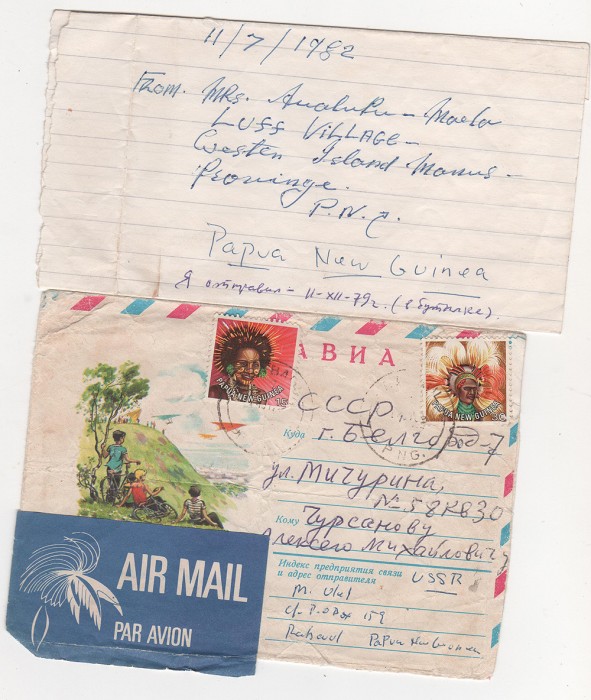 11/7/1982
From. MRS. Analuku - Maela
LUFF VILLAGE -
Westen Island Manus -
Provinge.
P.N.G.
Papua New Guinea
Я отправил - 11-XII-79г. (в бутылке).
АВИА
PAPUA NEW GUINEA
PAPUA NEW GUINEA
P.N.G.
СССР
Куда г. Белгород-7
ул. Мичурина,
№ 58 кв 30
Кому Чурсанову
Алексею Михайловичу
Индекс предприятия связи
и адрес отправителя
USSR
AIR MAIL
PAR AVION
P.O Box 159
Rabaul Papua New Guinea